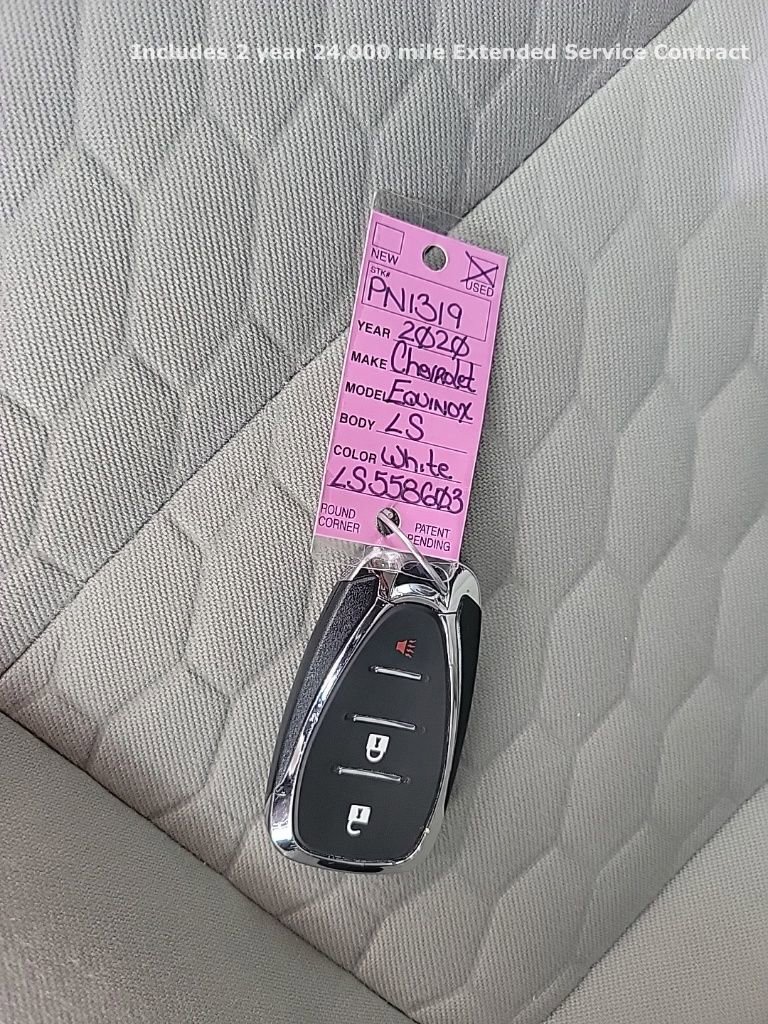 Includes 2 year 24,000 mile Extended Service Contract
NEW
USED
STK#
PN1319
YEAR 2020
MAKE Chevrolet
MODEL EQUINOX
BODY LS
COLOR White
LS558603
ROUND CORNER
PATENT PENDING